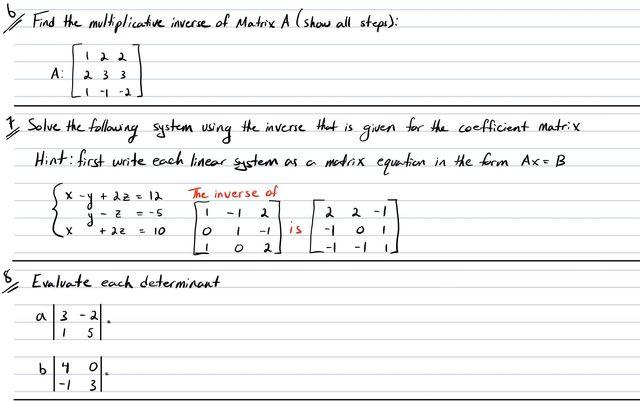 6 Find the multiplicative inverse of Matrix A (show all steps):
A: [1 2 2
2 3 3
1 -1 -2]
7 Solve the following system using the inverse that is given for the coefficient matrix
Hint: first write each linear system as a matrix equation in the form Ax = B
{x - y + 2z = 12 The inverse of
y - z = -5 [1 -1 2 [2 2 -1
x + 2z = 10 0 1 -1 is -1 0 1
1 0 2] -1 -1 1]
8 Evaluate each determinant
a |3 -2
1 5|.
b |4 0
-1 3|.